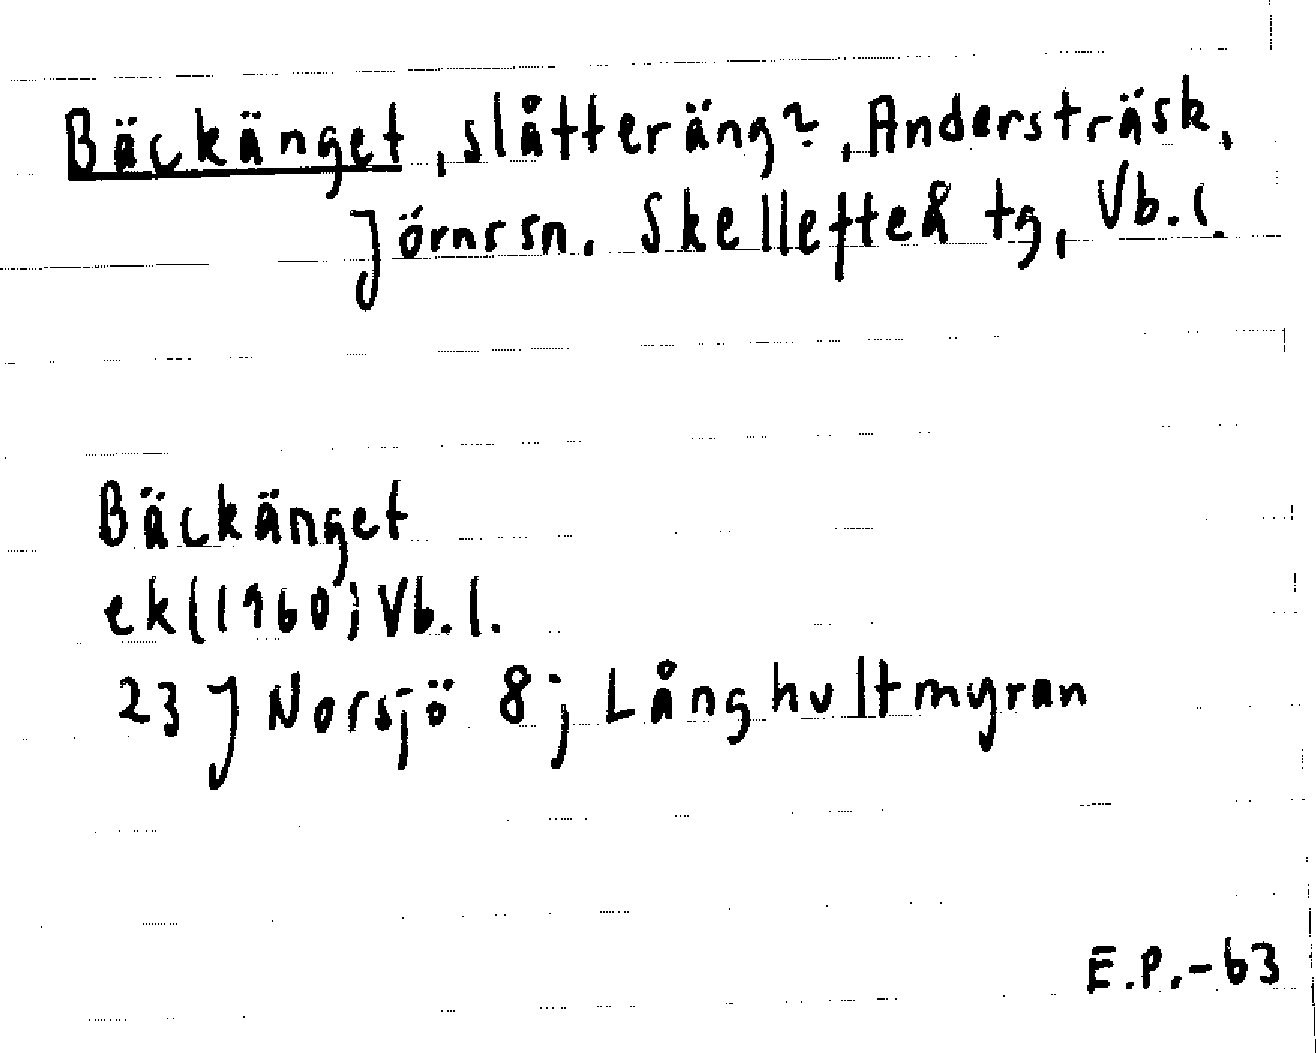 Bäckänget, slåtteräng?, Andersträsk,
Jörns sn. Skellefteå tg, Vb.l.
Bäckänget
ek (1960) Vb.l.
23 J Norsjö 8j Långhultmyran
E.P.-63